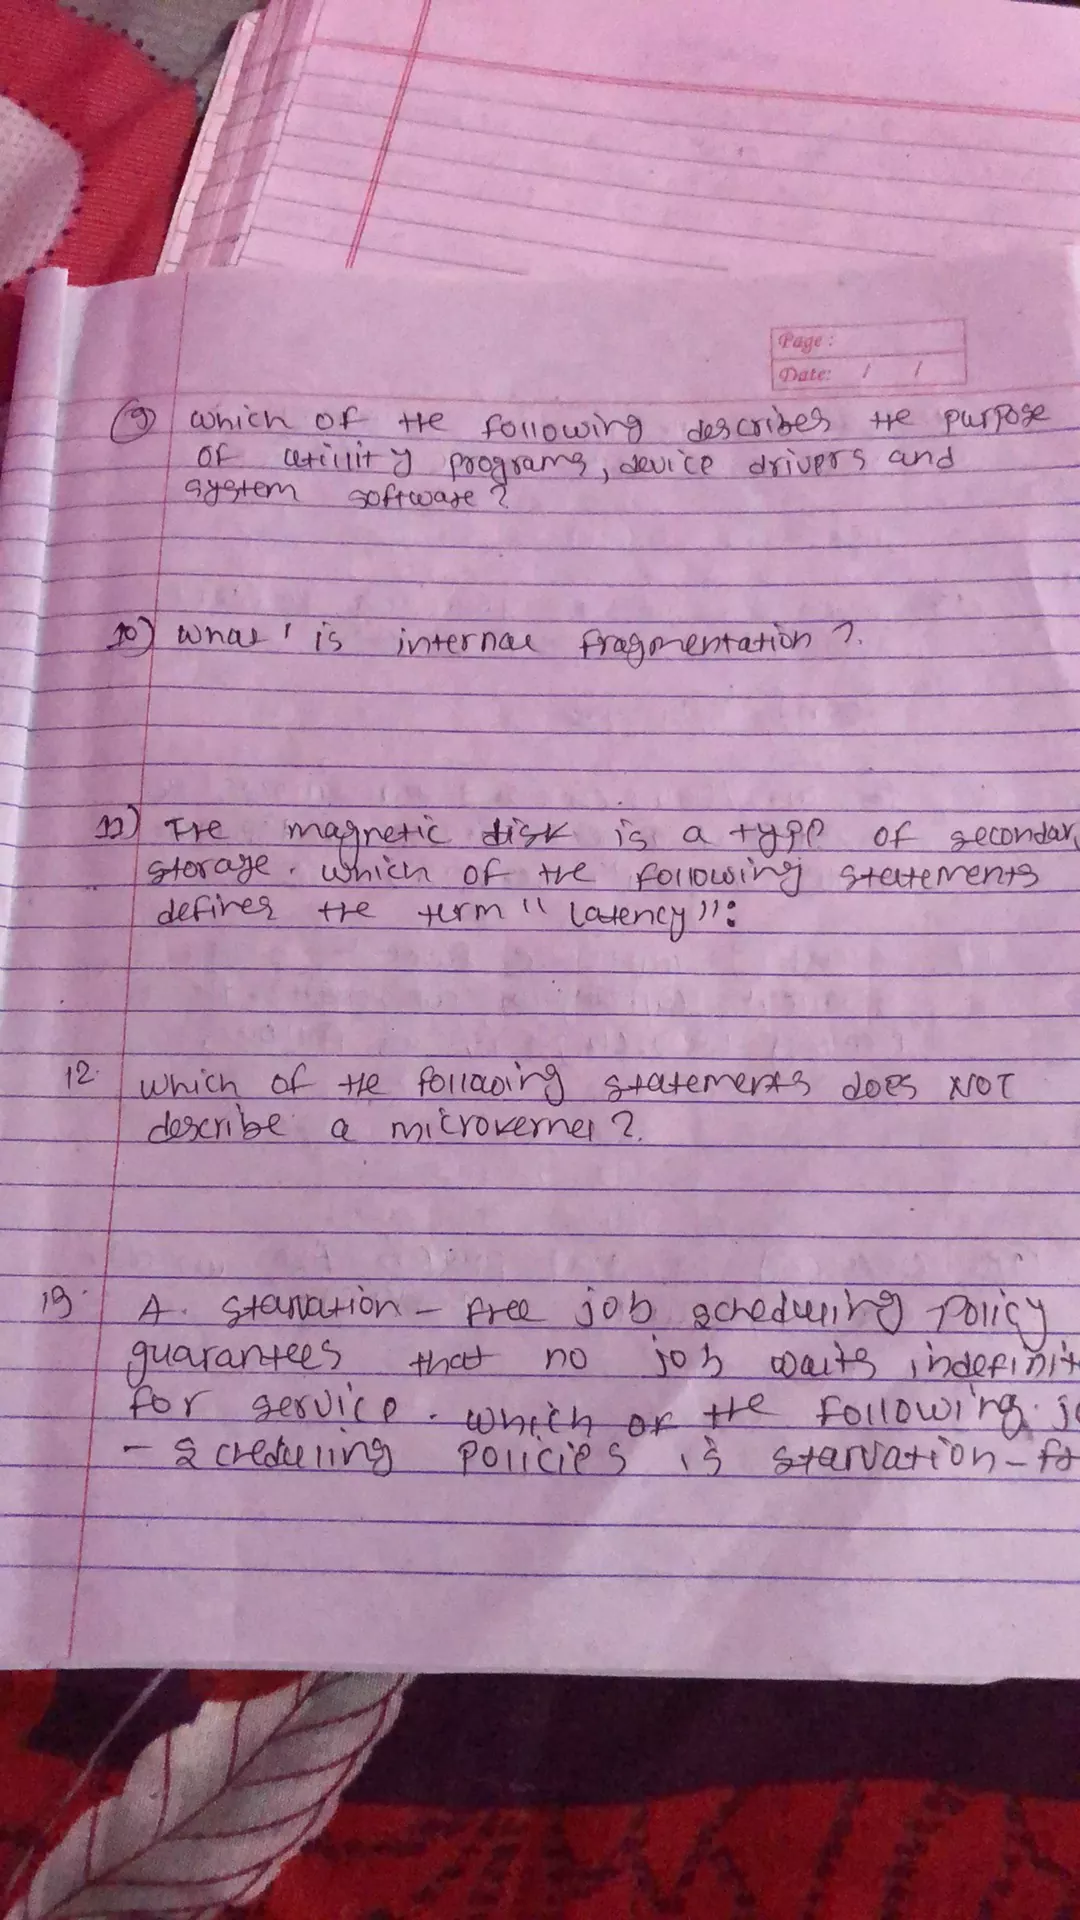 Page :
Date: / /
9) which of the following describes the purpose
of utility programs, device drivers and
system software?
10) what is internal fragmentation?.
11) The magnetic disk is a type of secondar
storage. which of the following statements
defines the term "Latency":
12. which of the following statements does NOT
describe a microkernel?.
13. A. starvation - free job scheduling policy
guarantees that no job waits indefinit
for service. which of the following jo
- scheduling policies is starvation - fr